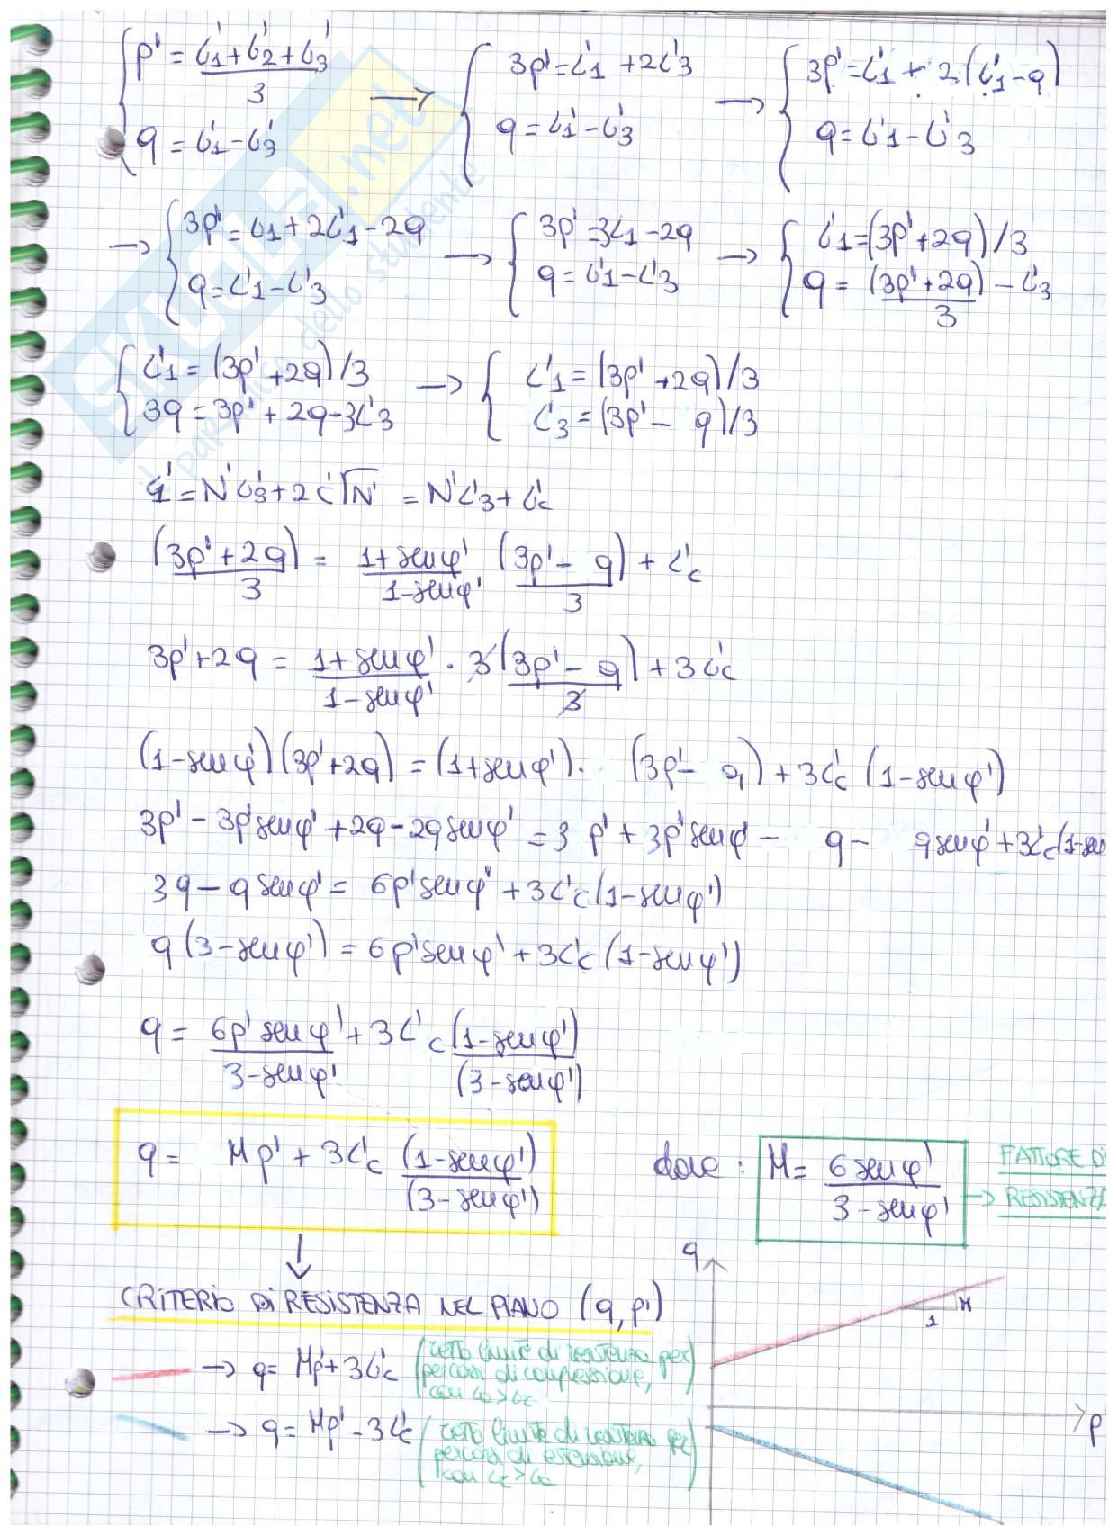 p' = (σ'1+σ'2+σ'3)/3 → 3p'=σ'1+2σ'3 → 3p'=σ'1+2(σ'1-q)
q = σ'1-σ'3 q=σ'1-σ'3 q=σ'1-σ'3
→ 3p'=σ1+2σ'1-2q → 3p'=3σ1-2q → σ'1=(3p'+2q)/3
q=σ'1-σ'3 q=σ'1-σ'3 q=(3p'+2q)/3-σ'3
σ'1=(3p'+2q)/3 → σ'1=(3p'+2q)/3
3q=3p'+2q-3σ'3 σ'3=(3p'- q)/3
σ'=N'σ'3+2c'√N' = N'σ'3+σ'c
(3p'+2q)/3 = (1+senφ')/(1-senφ') (3p'- q)/3 + σ'c
3p'+2q = (1+senφ')/(1-senφ') · 3(3p'- q)/3 + 3σ'c
(1-senφ')(3p'+2q)=(1+senφ')· (3p'- q)+3σ'c(1-senφ')
3p'-3p'senφ'+2q-2qsenφ'=3p'+3p'senφ'- q- qsenφ'+3σ'c(1-sen
3q-qsenφ'= 6p'senφ'+3σ'c(1-senφ')
q(3-senφ')=6p'senφ'+3σ'c(1-senφ')
q= 6p'senφ'/(3-senφ')+3σ'c(1-senφ')/(3-senφ')
q= Mp'+3σ'c(1-senφ')/(3-senφ') dove: M=6senφ'/(3-senφ') → FATTORE DI RESISTENZA
CRITERIO DI RESISTENZA NEL PIANO (q,p')
→ q=Mp'+3σ'c (retta limite di resistenza per
percorsi di compressione,
con
→ q=Mp'-3σ'c (retta limite di resistenza per
percorsi di estensione,
con
q
M
1
p
SKUOLA.net
il paradiso dello studente